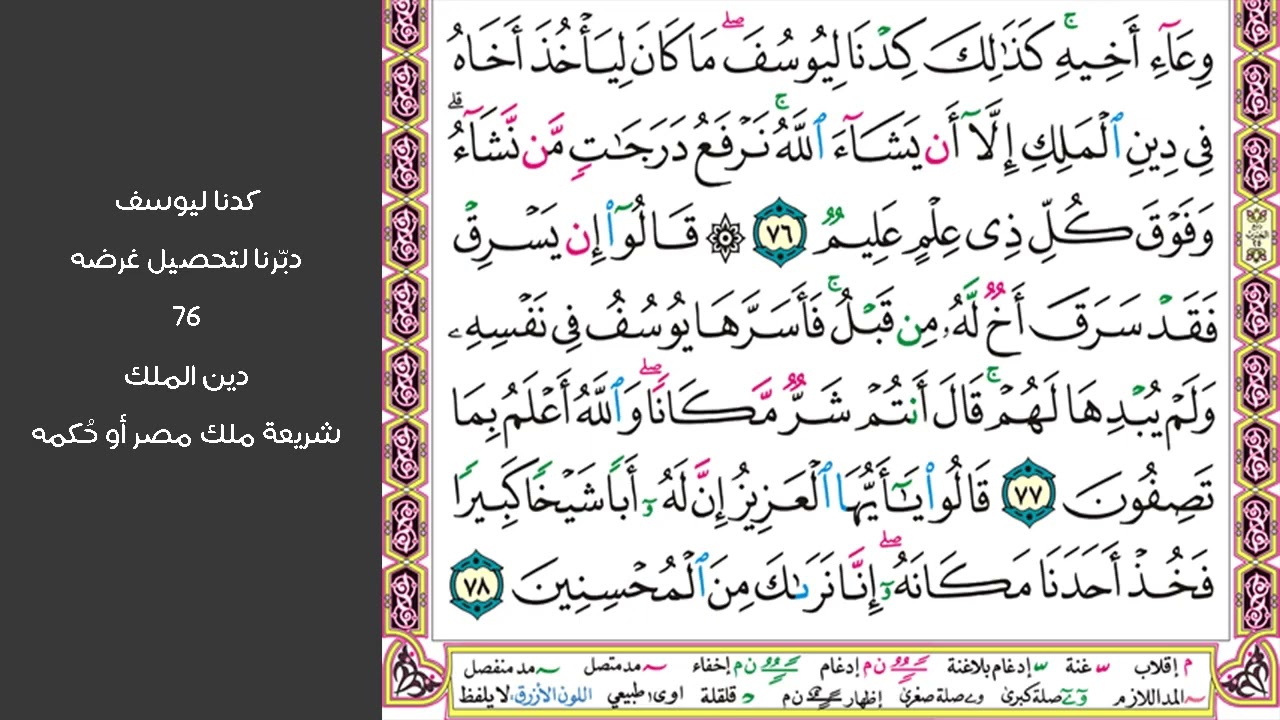 كدنا ليوسف
دبّرنا لتحصيل غرضه
76
دين الملك
شريعة ملك مصر أو حُكمه
وِعَآءِ أَخِيهِ ۚ كَذَٰلِكَ كِدْنَا لِيُوسُفَ ۖ مَا كَانَ لِيَأْخُذَ أَخَاهُ
فِى دِينِ ٱلْمَلِكِ إِلَّآ أَن يَشَآءَ ٱللَّهُ ۚ نَرْفَعُ دَرَجَـٰتٍ مَّن نَّشَآءُ ۗ
وَفَوْقَ كُلِّ ذِى عِلْمٍ عَلِيمٌ ٧٦ ۞ قَالُوٓا۟ إِن يَسْرِقْ
فَقَدْ سَرَقَ أَخٌ لَّهُۥ مِن قَبْلُ ۚ فَأَسَرَّهَا يُوسُفُ فِى نَفْسِهِۦ
وَلَمْ يُبْدِهَا لَهُمْ ۚ قَالَ أَنتُمْ شَرٌّ مَّكَانًا ۖ وَٱللَّهُ أَعْلَمُ بِمَا
تَصِفُونَ ٧٧ قَالُوا۟ يَـٰٓأَيُّهَا ٱلْعَزِيزُ إِنَّ لَهُۥٓ أَبًا شَيْخًا كَبِيرًا
فَخُذْ أَحَدَنَا مَكَانَهُۥٓ ۖ إِنَّا نَرَىٰكَ مِنَ ٱلْمُحْسِنِينَ ٧٨
م إقلاب غنة إدغام بلاغنة ن م إدغام ن م إخفاء مد متصل مد منفصل
المد اللازم صلة كبرى صلة صغرى إظهار ن م قلقلة اوى طبيعي اللون الأزرق: لا يلفظ